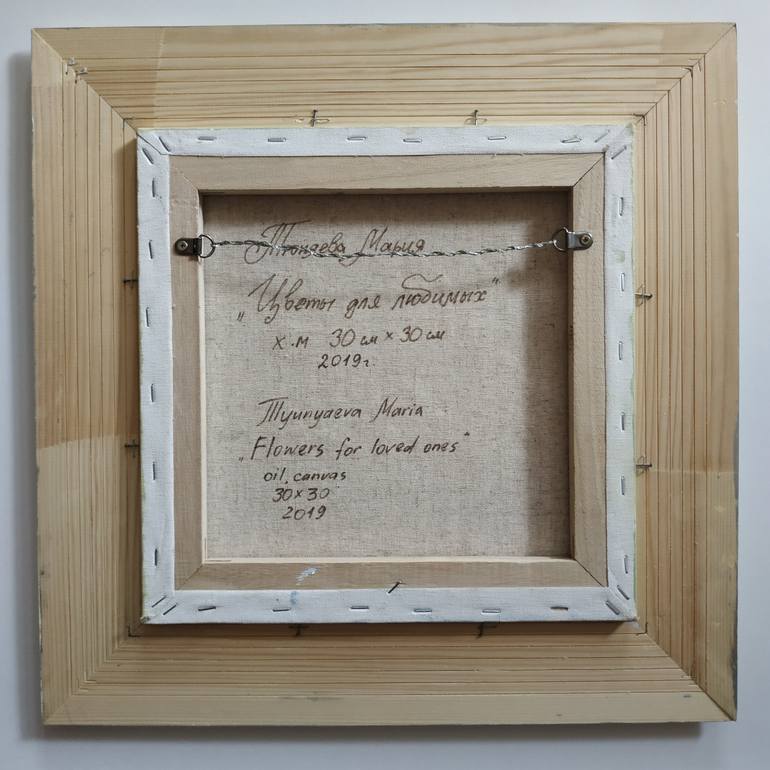 Тюняева Мария
„Цветы для любимых"
х.м 30 см × 30 см
2019г.
Tyunyaeva Maria
„Flowers for loved ones"
oil, canvas
30×30
2019